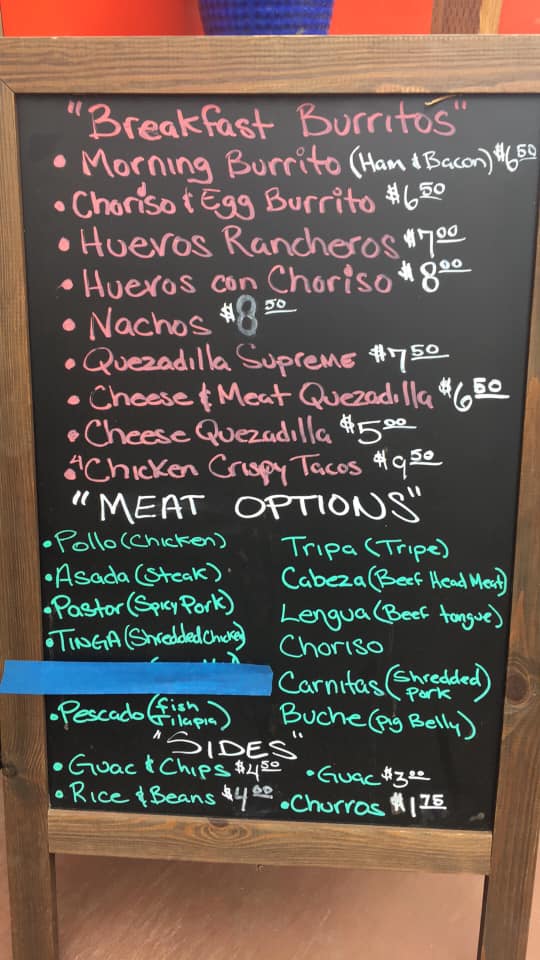 "Breakfast Burritos"
• Morning Burrito (Ham & Bacon) $6.50
• Choriso & Egg Burrito $6.50
• Huevos Rancheros $7.00
• Huevos con Choriso $8.00
• Nachos $8.50
• Quezadilla Supreme $7.50
• Cheese & Meat Quezadilla $6.50
• Cheese Quezadilla $5.00
• 4 Chicken Crispy Tacos $9.50
"MEAT OPTIONS"
• Pollo (Chicken)
• Asada (Steak)
• Pastor (Spicy Pork)
• TINGA (Shredded Chicken)
• Pescado (fish Tilapia)
Tripa (Tripe)
Cabeza (Beef Head Meat)
Lengua (Beef tongue)
Choriso
Carnitas (Shredded Pork)
Buche (Pig Belly)
"SIDES"
• Guac & Chips $4.50
• Guac $3.00
• Rice & Beans $4.00
• Churros $1.75